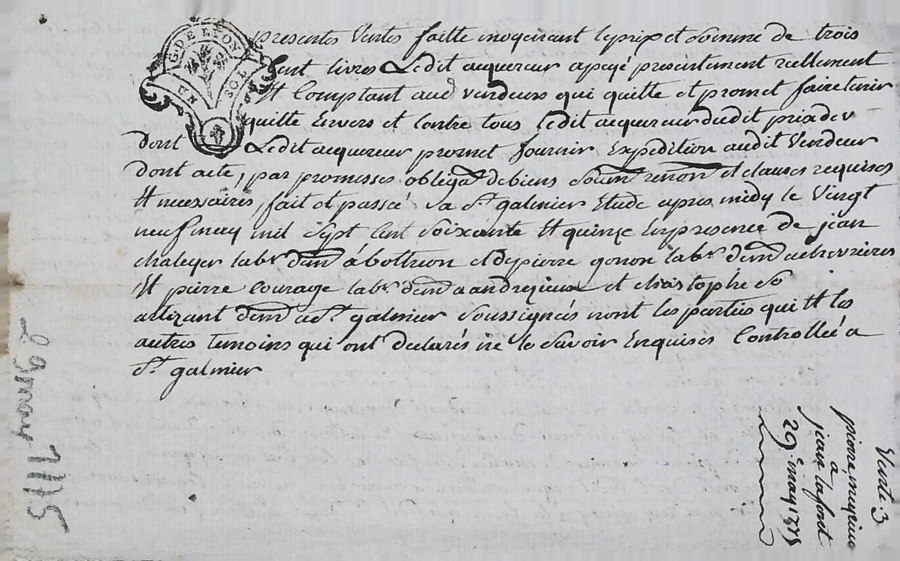 G. DE LYON
presentes Ventes faitte moyenant le prix et somme de trois
Cent livres Ledit acquereur a payé presentement reellement
Et Comptant aud. vendeurs qui quitte et promet faire tenir
quitte Envers et Contre tous Ledit acquereur dudit prix de v
dont Ledit acquereur promet fournir Expedition audit Vendeur
dont acte, par promesses obliga. de biens soum. renon. et clauses requises
Et necessaires, fait et passé a St. galmier Etude apres midy le Vingt
neuf may mil sept Cent soixante Et quinze En presence de jean
chaleyer lab. dem. à bothéon et de pierre gonon lab. dem. a chevrieres
Et pierre courage lab. dem. a andrezieux et christophe
artizant dem. a St. galmier soussignés nont les parties qui Et les
autres temoins qui ont declarés ne le Savoir Enquises Controllée a
St. galmier
29 may 1775
Vente 3
pierre
a
jean lafont
29e. may 1775